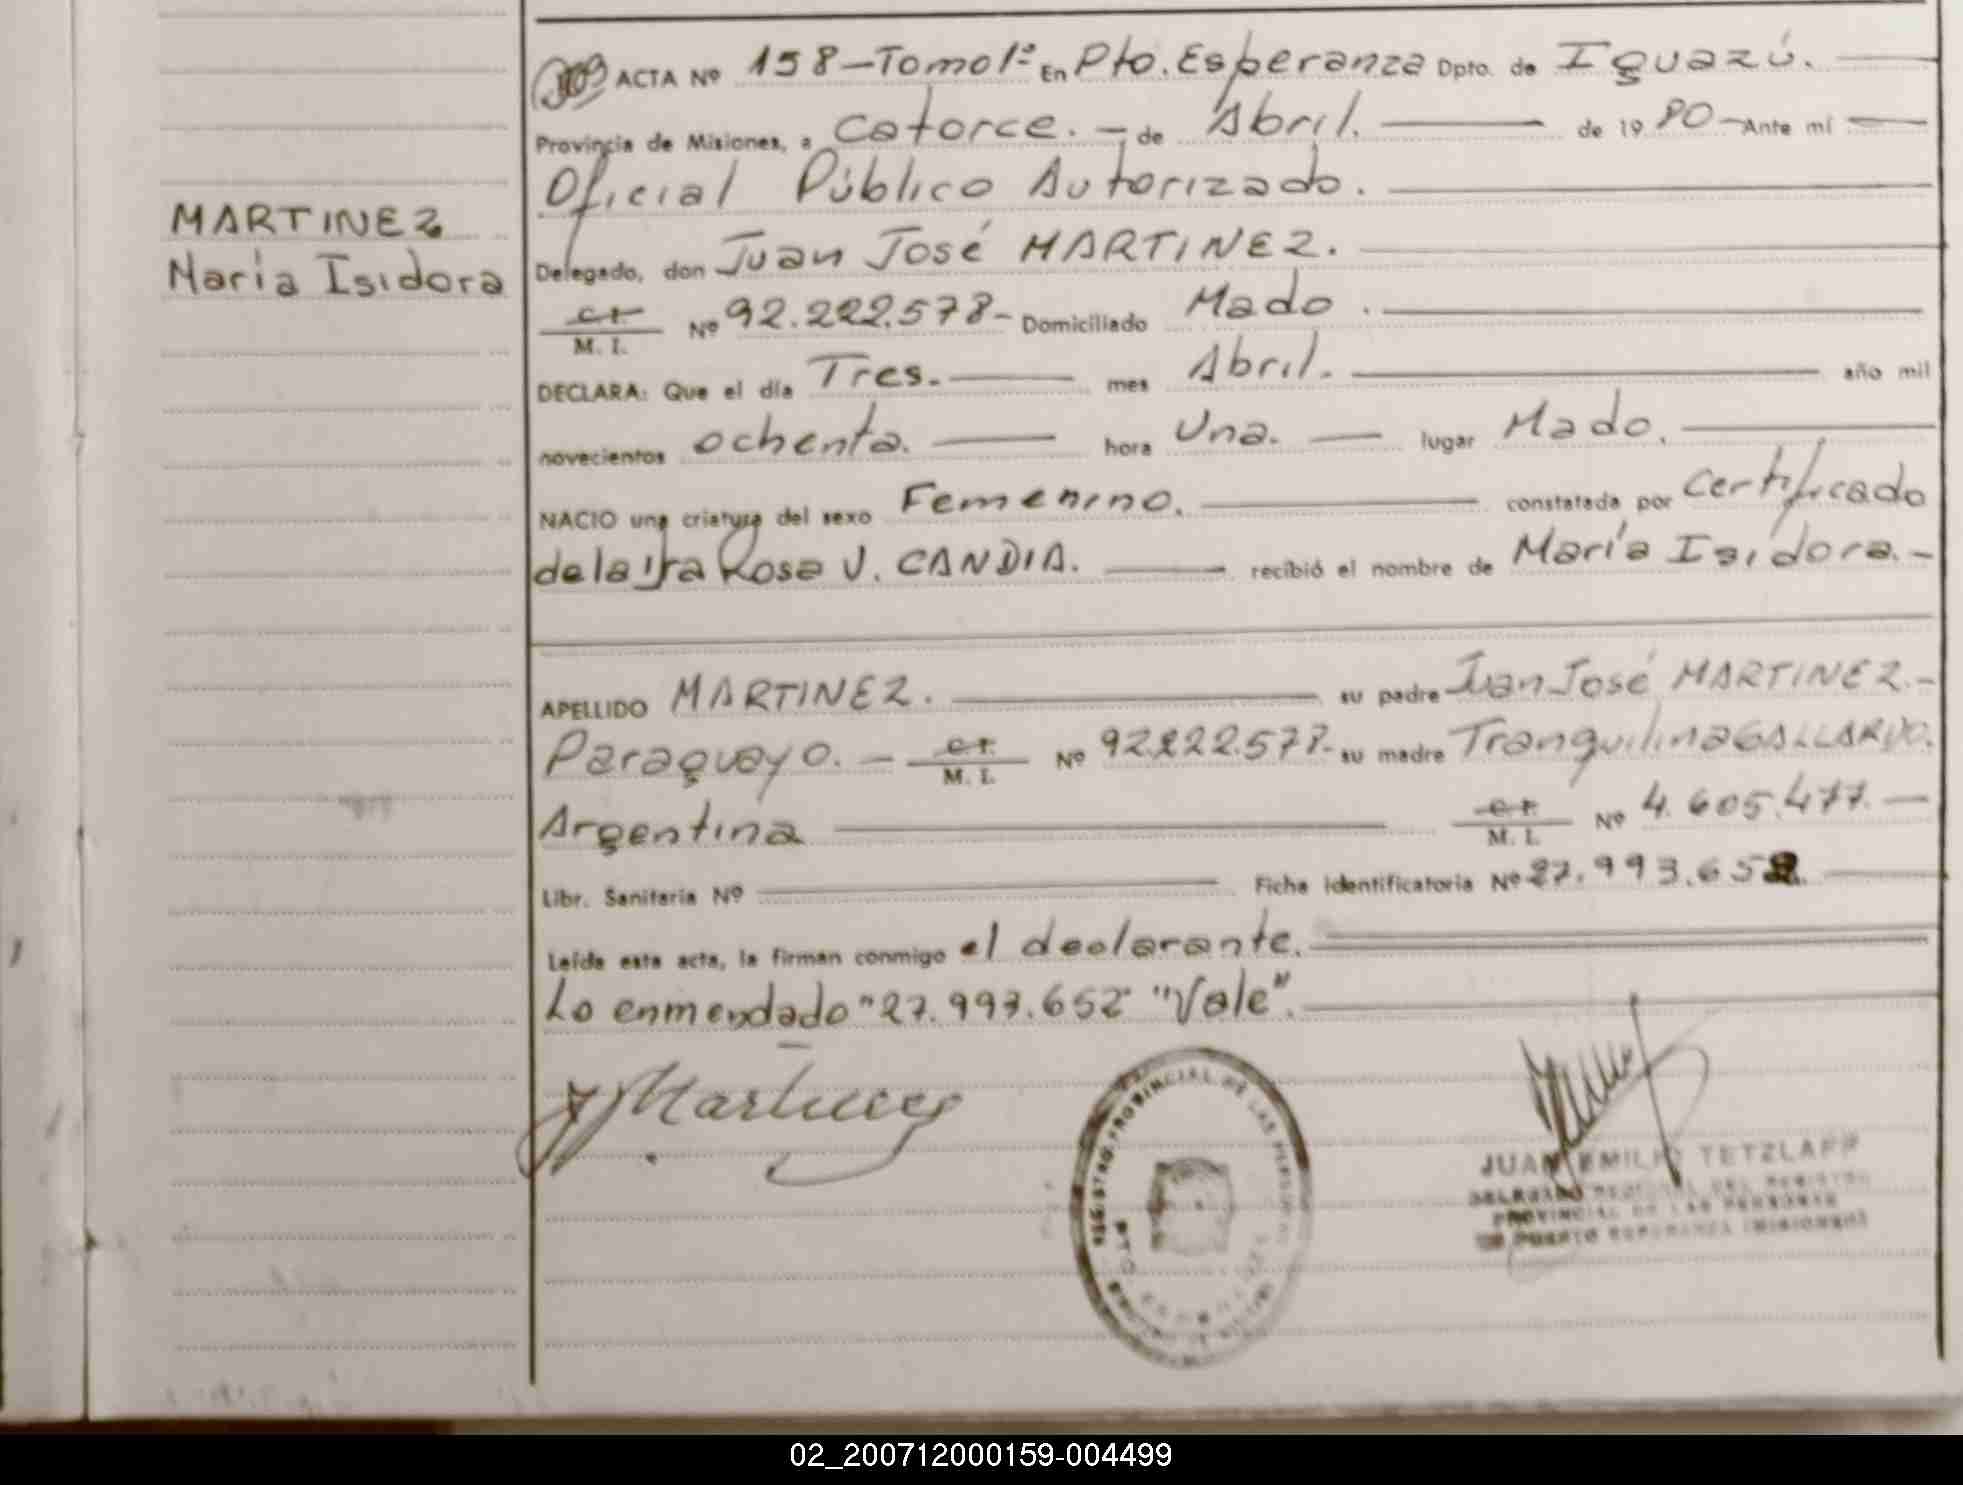 MARTINEZ
María Isidora
ACTA Nº 158-Tomo 1º En Pto. Esperanza Dpto. de Iguazú.
Provincia de Misiones, a catorce. - de Abril. de 19 80 - Ante mí
Oficial Público Autorizado.
Delegado, don Juan José MARTINEZ.
C.I.
M. I. Nº 92.222.578- Domiciliado Mado.
DECLARA: Que el día Tres. mes Abril. año mil
novecientos ochenta. hora Una. lugar Mado.
NACIO una criatura del sexo Femenino. constatada por Certificado
de la Rosa V. CANDIA. recibió el nombre de María Isidora.-
APELLIDO MARTINEZ. su padre Juan José MARTINEZ.-
Paraguayo. - C.I.
M. I. Nº 92.222.578- su madre Tranquilina GALLARDO.
Argentina C.I.
M. I. Nº 4.605.477.-
Libr. Sanitaria Nº Ficha identificatoria Nº 27.993.652.
Leída esta acta, la firman conmigo el declarante.
Lo enmendado "27.993.652" "Vale".
J Martinez
REGISTRO PROVINCIAL DE LAS PERSONAS
JUAN EMILIO TETZLAFF
DELEGADO REGIONAL DEL REGISTRO
PROVINCIAL DE LAS PERSONAS
DE PUERTO ESPERANZA (MISIONES)
02_200712000159-004499